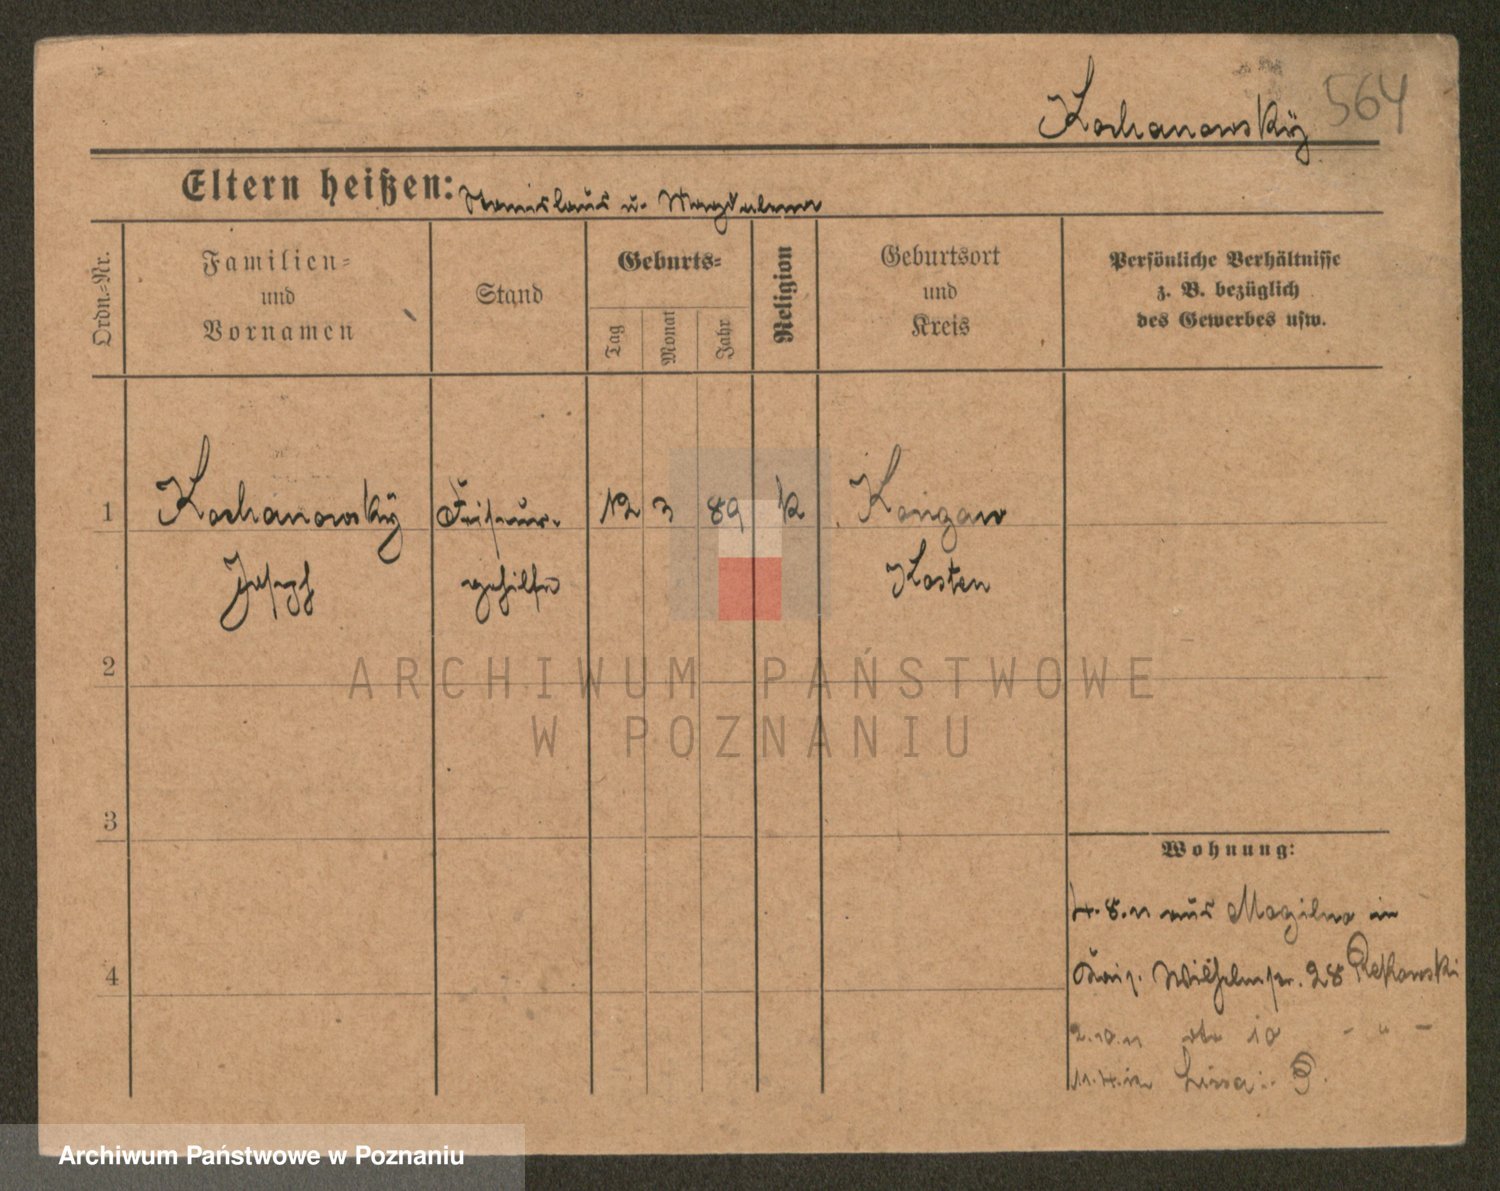 564
Kochanowsky
Eltern heißen: Stanislaus u. Magdalena
Ordn.-Nr.
Familien-
und
Vornamen
Stand
Geburts-
Tag
Monat
Jahr
Religion
Geburtsort
und
Kreis
Persönliche Verhältnisse
z. B. bezüglich
des Gewerbes usw.
1 Kochanowsky Friseur- 12 3 89 k
Joseph gehilfe Kosten
2
3
4
ARCHIWUM PAŃSTWOWE
W POZNANIU
Wohnung:
4.8.11 aus Mogilno in
Wilhelmstr. 28
2.10.11 10 - " -
11.4.12 Lissa
Archiwum Państwowe w Poznaniu